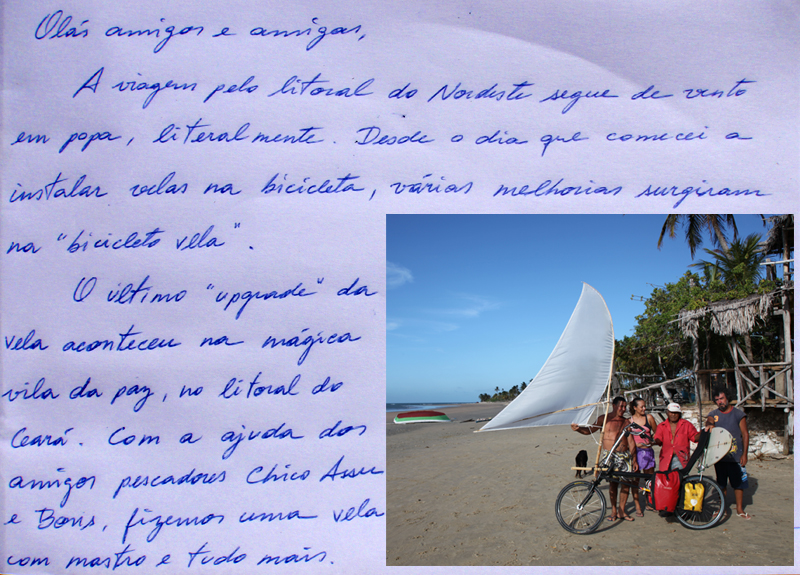 Olás amigos e amigas,
A viagem pelo litoral do Nordeste segue de vento
em popa, literalmente. Desde o dia que comecei a
instalar velas na bicicleta, várias melhorias surgiram
na "bicicleta vela".
O último "upgrade" da
vela aconteceu na mágica
vila da paz, no litoral do
Ceará. Com a ajuda dos
amigos pescadores Chico Assu
e Boris, fizemos uma vela
com mastro e tudo mais.